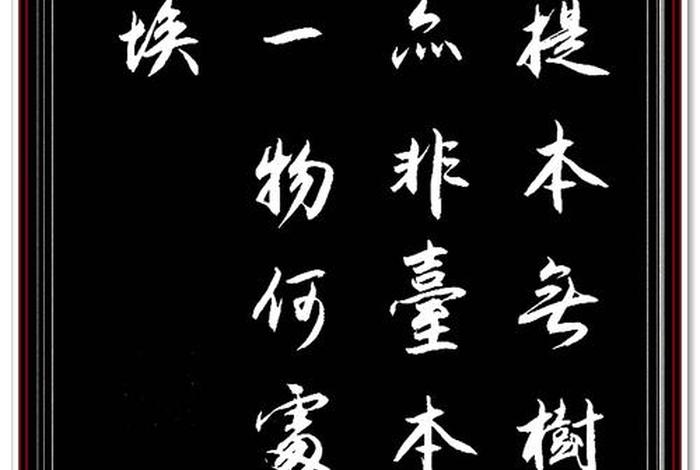 提本無樹
亦非臺本
一物何處
埃